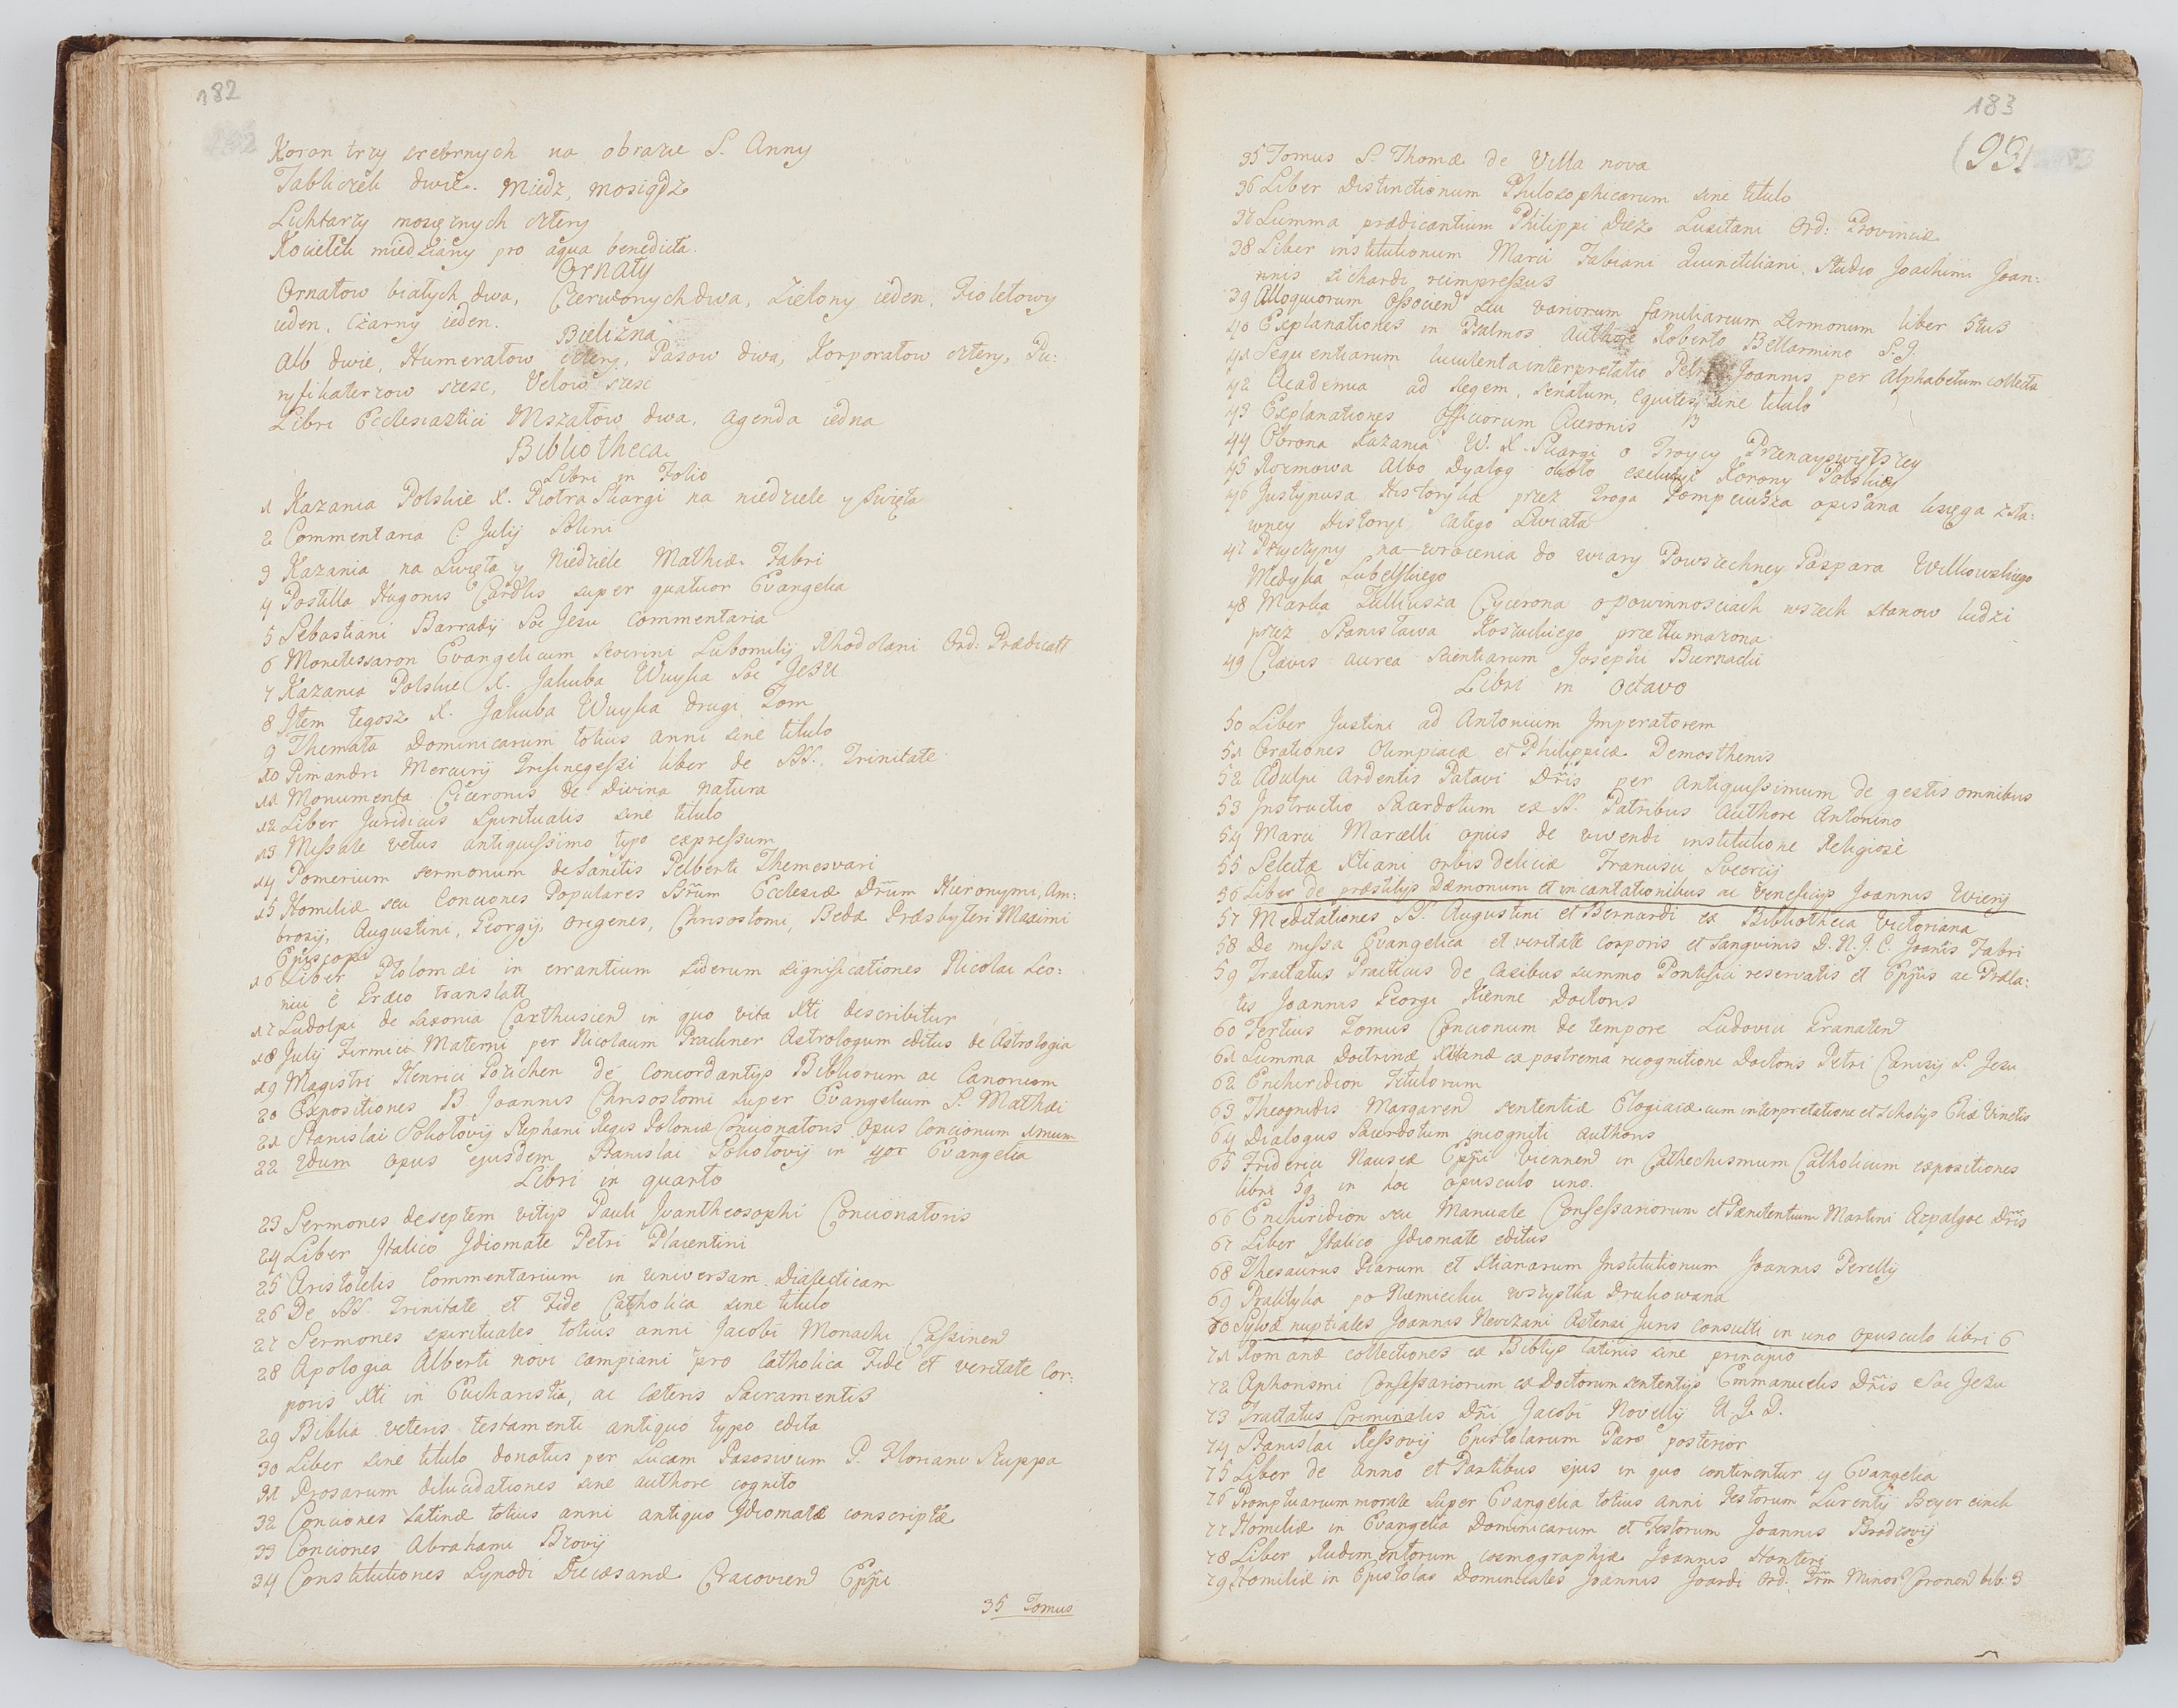 182
Koron trzy srebrnych na obrazie S. Anny
Tabliczek dwie. Miedz, mosiądz
Lichtarzy mosięznych cztery
Kociełek miedziany pro aqua benedicta.
Ornaty
Ornatow białych dwa, Czerwonych dwa, Zielony ieden, Fioletowy
ieden, Czarny ieden.
Bielizna
Alb dwie, Humerałow cztery, Pasow dwa, Korporałow cztery, Pu:
ryfikaterzow szesc, Velow szesc
Libri Ecclesiastici Mszałow dwa, agenda iedna
Bibliotheca
Libri in Folio
1 Kazania Polskie X. Piotra Skargi na niedziele y Swięta
2 Commentaria C. Julij Solini
3 Kazania na Swięta y Niedziele Mathiæ Fabri
4 Postilla Hugonis Cardlis super quatuor Evangelia
5 Sebastiani Barradij Soc Jesu Commentaria
6 Monitessaron Evangelicum Severini Lubomilij Rhodolani Ord: Prædicatt
7 Kazania Polskie X. Jakuba Wuyka Soc JESU
8 Jtem tegosz X. Jakuba Wuyka drugi Tom
9 Themata Dominicarum totius anni sine titulo
10 Pimandri Mercurij Trisinegessi liber de SSS. Trinitate
11 Monumenta Ciceronis de Divina Natura
12 Liber Juridicus Spiritualis sine titulo
13 Missale vetus antiquissimo typo expressum
14 Pomerium sermonum de Sanctis Pelberti Themesvari
15 Homiliæ seu Conciones Populares Ssrum Ecclesiæ Drum Hieronymi, Am:
brosij, Augustini, Georgij, Origenes, Chrisostomi, Bedæ Præsbyteri Maximi
Episcopi
16 Liber Ptolomæi in errantium siderum significationes Nicolai Leo:
nici è Græco translatt
17 Ludolpi de Saxonia Carthusien in quo vita Xti describitur
18 Julij Firmici Materni per Nicolaum Pruckner Astrologum editus de Astrologia
19 Magistri Henrici Gorichen de Concordantijs Bibliorum ac Canonum
20 Expositiones B. Joannis Chrisostomi super Evangelium S. Mathæi
21 Stanislai Sokolovij Stephani Regis Poloniæ Concionatoris Opus Concionum 1mum
22 2dum opus ejusdem Stanislai Sokolovij in 4or Evangelia
Libri in quarto
23 Sermones de septem vitijs Pauli Juantheosophi Concionatoris
24 Liber Italico Jdiomate Petri Placentini
25 Aristotelis Commentarium in universam Dialecticam
26 De SSS. Trinitate et Fide Catholica sine titulo
27 Sermones spirituales totius anni Jacobi Monachi Cassinen
28 Apologia Alberti novi campiani pro Catholica Fide et veritate Cor:
poris Xti in Eucharistia, ac cæteris Sacramentis
29 Biblia veteris testamenti antiquo typo edita
30 Liber sine titulo donatus per Lucam Pasosivum P. Floriano Skuppa
31 Prosarum dilucidationes sine authore cognito
32 Conciones Latinæ totius anni antiquo Jdiomate conscriptæ
33 Conciones Abrahami Bzovij
34 Constitutiones Synodi Diæcesanæ Cracovien Eppi
35 Tomus
183
(93)
35 Tomus S. Thomæ de Villa nova
36 Liber Distinctionum Philosophicarum sine titulo
37 Summa prædicantium Philippi Diez Lusitani Ord: Provinciæ
38 Liber institutionum Marci Fabiani Quinctiliani, Studio Joachimi Joan:
nnis sichardi reimpressus
39 Alloquiorum Ossocien seu variorum familiarium Sermonum liber 5tus
40 Explanationes in Psalmos Authore Roberto Bellarmino S. J.
41 Sequentiarum luculenta interpretatio Petri Joannis per Alphabetum collecta
42 Academia ad Regem, Senatum, Equites, sine titulo
43 Explanationes Officiorum Ciceronis 13
44 Obrona Kazania W. X. Skargi o Troycy Przenayswiętszey
45 Rozmowa Albo Dyalog około exekucyi Korony Polskiey
46 Justynusa Historyka przez Troga Pompeiusza opisana księga zsta:
wney Historyi całego Swiata
47 Przyczyny na-wrocenia do wiary Powszechney Paspara Wilkowskiego
Medyka Lubelskiego
48 Marka Tulliusza Cycerona o powinnosciach wszech stanow ludzi
przez Stanisława Koszuckiego przetłumaczona
49 Clavis aurea scientiarum Josephi Biernacki
Libri in Octavo
50 Liber Justini ad Antonium Jmperatorem
51 Orationes Olimpiacæ et Philippicæ Demosthenis
52 Adulpi Ardentis Patavi Dris per antiquissimum de gestis omnibus
53 Jnstructio Sacerdotum ex SS. Patribus Authore Antonino
54 Marci Marælli opus de vivendi institutione Religiose
55 Selectæ Xtiani orbis deliciæ Francisci SveerCij
56 Liber de præstitijs Dæmonum et incantationibus ac veneficijs Joannis Wierij
57 Meditationes SS. Augustini et Bernardi ex Bibliotheca Victoriana
58 De missa Evangelica et veritate corporis et Sangvinis D. N. J. C. Joanis Fabri
59 Tractatus Practicus de Casibus summo Pontifici reservatis et Eppis ac Præla:
tis Joannis Georgi Kienne Doctoris
60 Tertius Tomus Concionum de tempore Ludovici Granaten
61 Summa Doctrinæ Xtianæ ex postrema recognitione Doctoris Petri Canisij S. Jesu
62 Enchiridion Titulorum
63 Theognidis Margaren sententiæ Elogiacæ cum interpretatione et scholijs Eliæ Vinetis
64 Dialogus Sacerdotum incogniti authoris
65 Friderici Nauseæ Eppi Viennen in Cathechismum Catholicum expositiones
libri 5q in hoc opusculo uno.
66 Enchiridion seu Manuale Confessariorum et Pænitentium Martini Azpalgoe Dris
67 Liber Italico Jdiomate editus
68 Thesaurus Piarum et Xtianarum Jnstitutionum Joannis Perelly
69 Praktyka po Niemiecku wszystka Drukowana
70 Sylvæ nuptiales Joannis Nevizani Astensi Juris consulti in uno opusculo libri 6
71 Romanæ collectiones ex Biblijs latinis sine principio
72 Aphorismi Confessariorum ex Doctorum sententijs Emmanuelis Dris Soc Jesu
73 Tractatus Criminalis Dni Jacobi Novellij U. J. D.
74 Stanislai Ressovij Epistolarum Pars posterior
75 Liber de Anno et Partibus ejus in quo continentur y Evangelia
76 Promptuarium morale super Evangelia totius anni Festorum Lurentij Beyer einck
77 Homiliæ in Evangelia Dominicarum et Festorum Joannis Brodcovij
78 Liber Rudimentorum cosmographiæ Joannis Honteri
79 Homiliæ in Epistolas Dominicales Joannis Joardi Ord. Frm Minor Coronen lib: 3